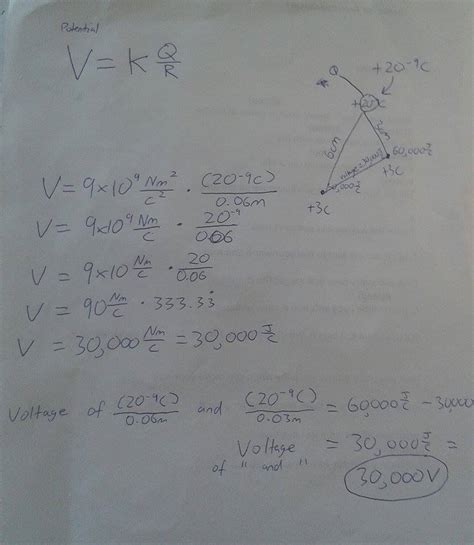 Potential
V = K Q/R
Q
+20⁻⁹C
6cm
3cm
60,000 J/C
+3C
+3C
V = 9×10⁹ Nm²/C² · (20⁻⁹C)/0.06m
V = 9×10⁹ Nm/C · 20⁻⁹/0.06
V = 9×10 Nm/C · 20/0.06
V = 90 Nm/C · 333.33
V = 30,000 Nm/C = 30,000 J/C
Voltage of (20⁻⁹C)/0.06m and (20⁻⁹C)/0.03m = 60,000 J/C - 30,000
Voltage of " and " = 30,000 J/C =
30,000V